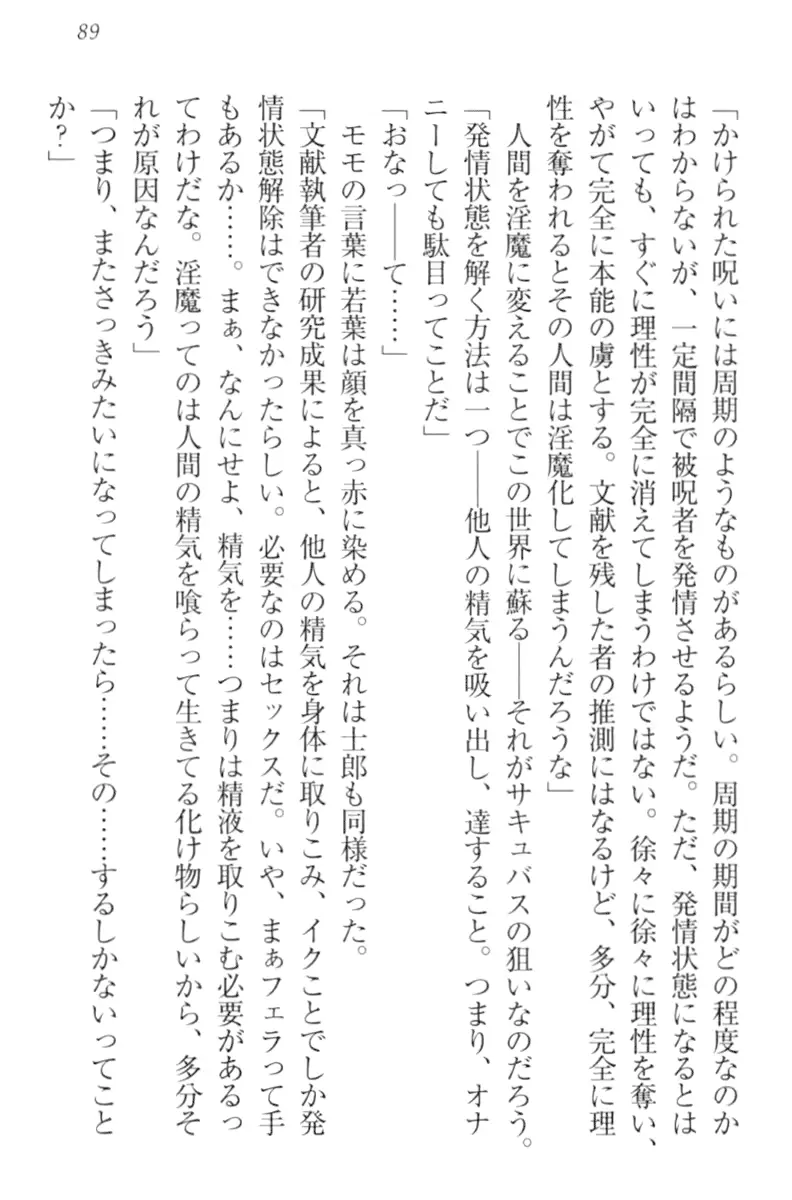 89
「かけられた呪いには周期のようなものがあるらしい。周期の期間がどの程度なのか
はわからないが、一定間隔で被呪者を発情させるようだ。ただ、発情状態になるとは
いっても、すぐに理性が完全に消えてしまうわけではない。徐々に徐々に理性を奪い、
やがて完全に本能の虜とする。文献を残した者の推測にはなるけど、多分、完全に理
性を奪われるとその人間は淫魔化してしまうんだろうな」
人間を淫魔に変えることでこの世界に蘇る――それがサキュバスの狙いなのだろう。
「発情状態を解く方法は一つ――他人の精気を吸い出し、達すること。つまり、オナ
ニーしても駄目ってことだ」
「おなっ――て……」
モモの言葉に若葉は顔を真っ赤に染める。それは士郎も同様だった。
「文献執筆者の研究成果によると、他人の精気を身体に取りこみ、イクことでしか発
情状態解除はできなかったらしい。必要なのはセックスだ。いや、まぁフェラって手
もあるか……。まぁ、なんにせよ、精気を……つまりは精液を取りこむ必要があるっ
てわけだな。淫魔ってのは人間の精気を喰らって生きてる化け物らしいから、多分そ
れが原因なんだろう」
「つまり、またさっきみたいになってしまったら……その……するしかないってこと
か？」